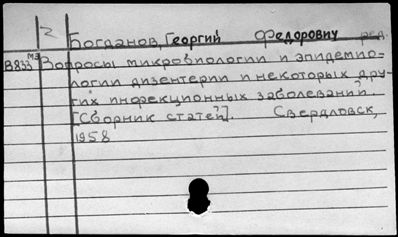 2
Богданов, Георгий Федорович ред.
В833 МЭ Вопросы микробиологии и эпидемио-
логии дизентерии и некоторых дру-
гих инфекционных заболеваний.
[Сборник статей]. Свердловск,
1958